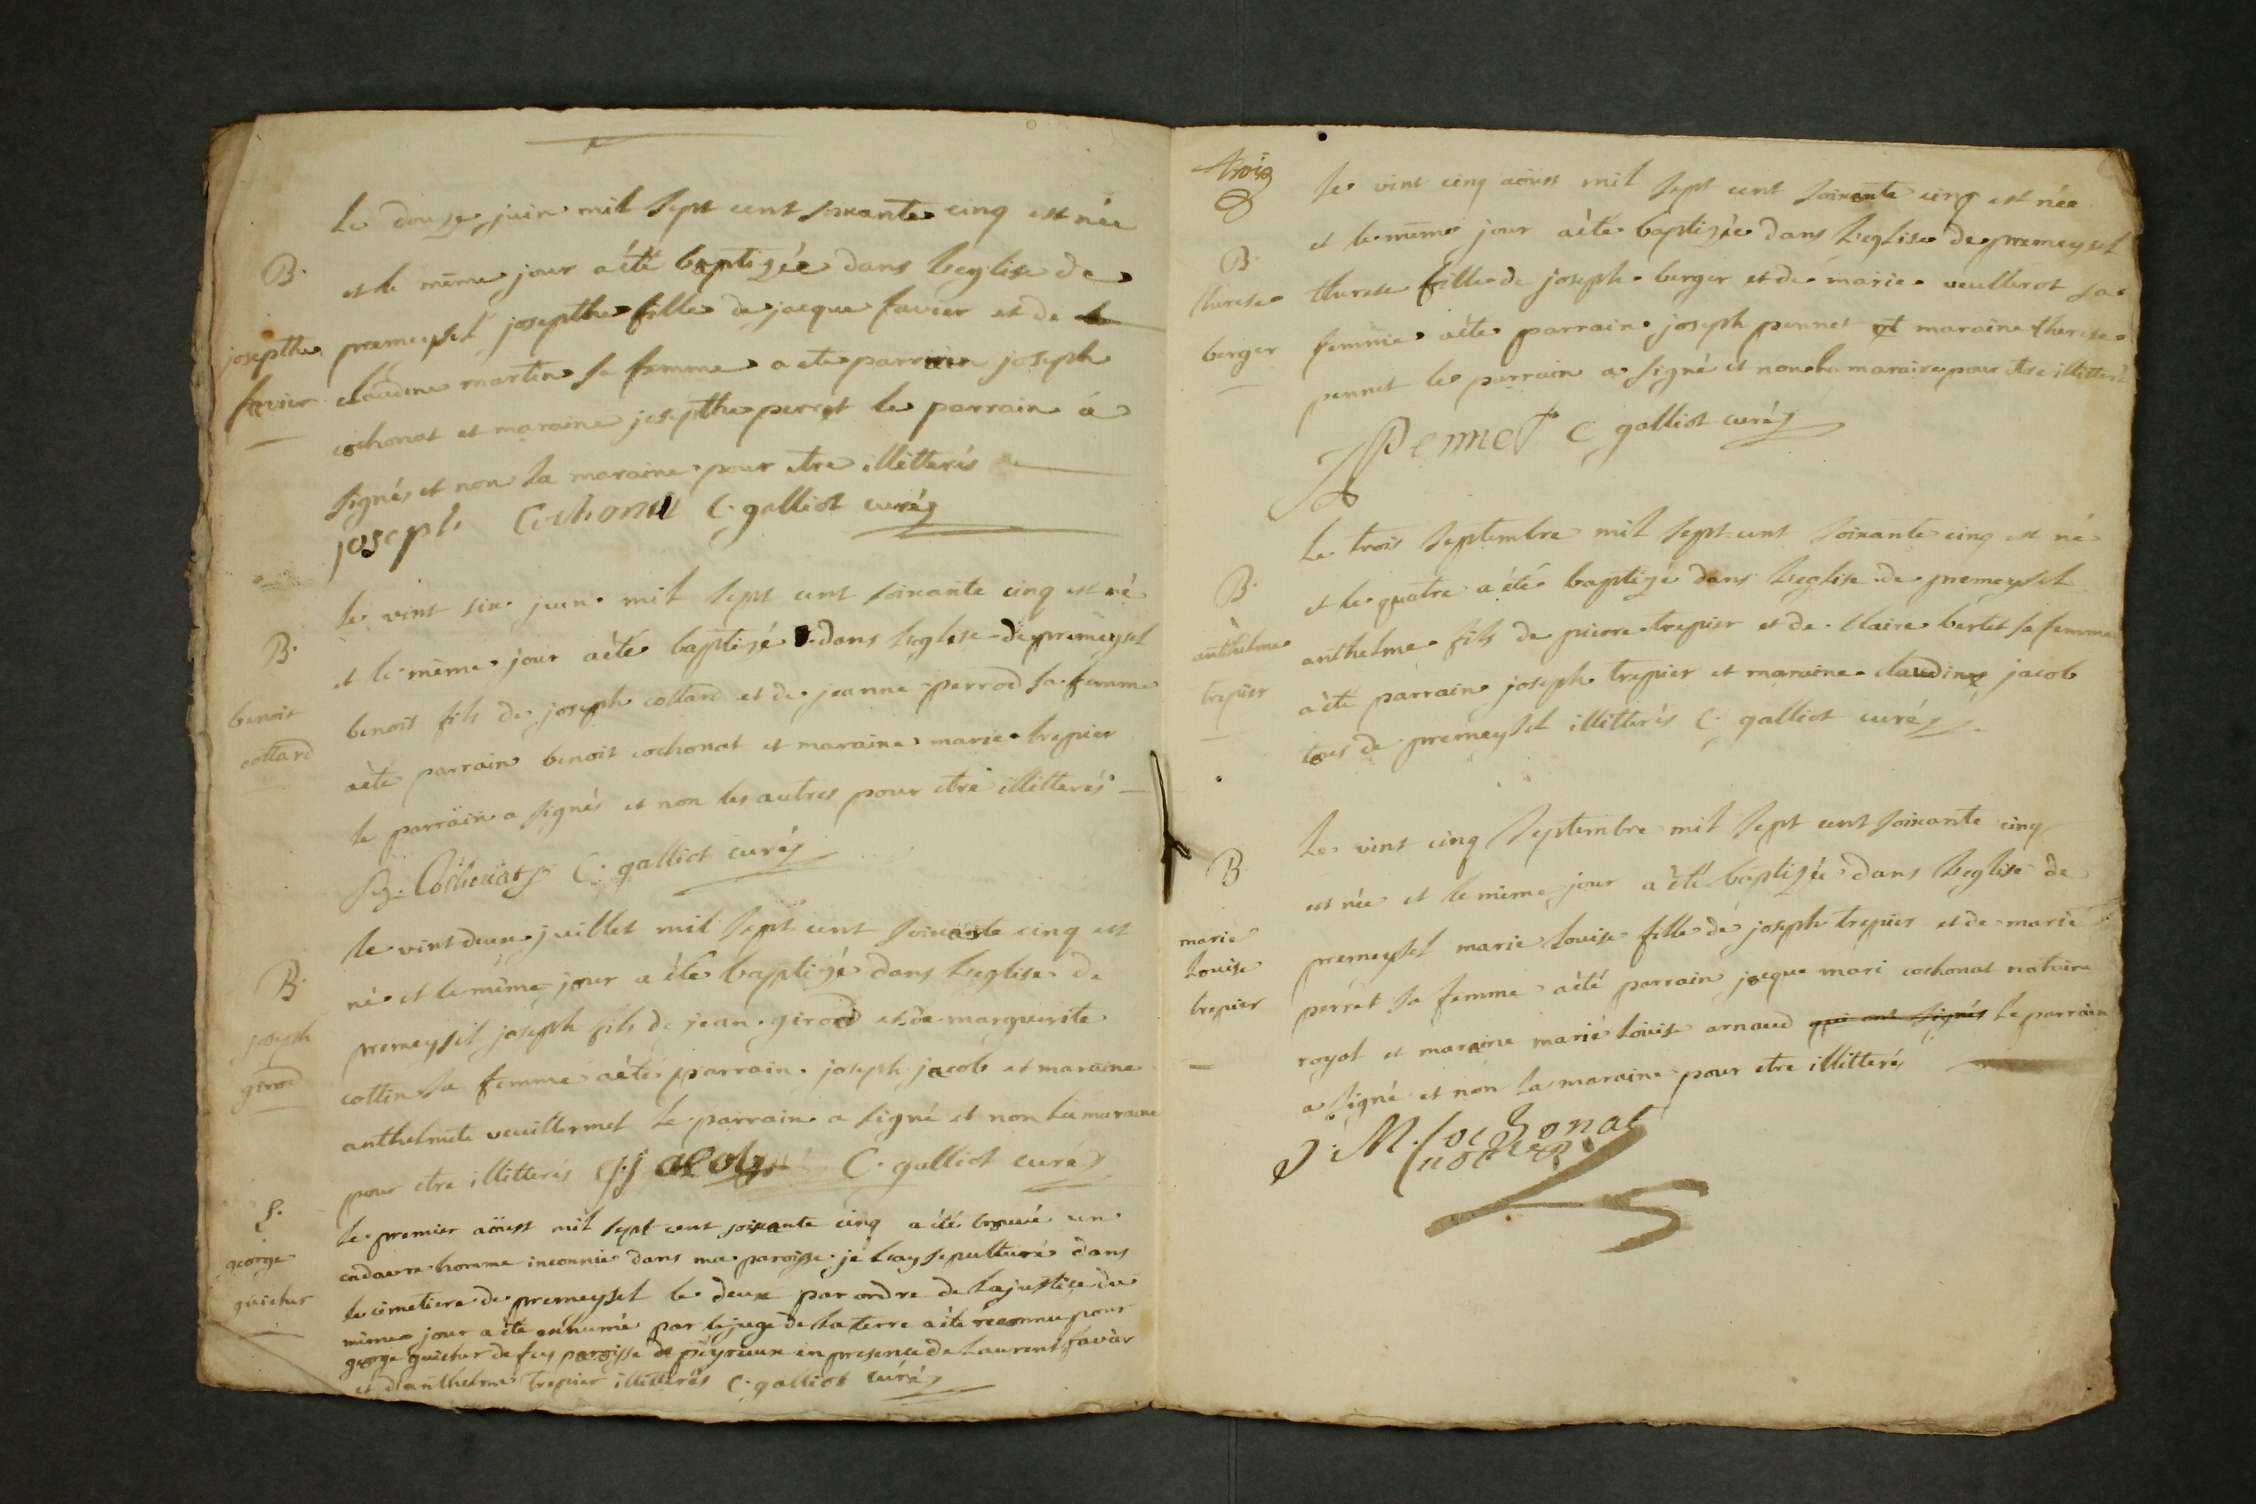 B.
josepthe
favier
Le douze juin mil sept cent soixante cinq est née
et le même jour a été baptizée dans Leglise de
premeysel josepthe fille de jacque favier et de
claudine martin sa femme a été parrain joseph
cochonat et maraine josepthe perret le parrain à
signés et non la maraine pour etre illitterés
joseph Cochonat C. galliot curé
B.
benoit
collard
le vint six juin mil sept cent soixante cinq est né
et le même jour aété baptizé dans Leglise de premeysel
benoit fils de joseph collard et de jeanne perrod sa femme
aété parrain benoit cochonat et maraine marie trepier
le parrain a signés et non les autres pour etre illitterés
B. Cochonat C. galliot curé
B.
joseph
girod
le vint deux juillet mil sept cent soixante cinq est
né et le même jour a été baptizé dans Leglise de
premeysel joseph fils de jean girod et de marguerite
collin sa femme aété parrain joseph jacob et maraine
anthelmete veuillermet le parrain a signé et non la maraine
pour etre illitterés J. jacob C. galliot curé
S.
george
guichar
Le premier aoust mil sept cent soixante cinq a été trouvé un
cadavre homme inconnue dans ma paroisse je Lay sepulturé dans
le cimetiere de premeysel le deux par ordre de La justice du
même jour a été exhumé par le juge de La terre a été reconnu pour
george guichar de paroisse de peyrieux en presence de Laurent favier
et danthelme trepier illitterés C. galliot curé
trois
B.
therese
berger
Le vint cinq aoust mil sept cent soixante cinq est née
et le même jour aété baptizée dans Leglise de premeysel
therese fille de joseph berger et de marie veullerot sa
femme aété parrain joseph pennet et maraine therese
pennet le parrain a signé et non la maraine pour etre illitteré
J Pennet C galliot curé
B.
anthelme
trepier
Le trois septembre mil sept cent soixante cinq est né
et le quatre a été baptizé dans Leglise de premeysel
anthelme fils de pierre trepier et de Claire berlet sa femme
aété parrain joseph trepier et maraine claudine jacob
tous de premeysel illitterés C. galliot curé
B
marie
Louise
trepier
Le vint cinq septembre mil sept cent soixante cinq
est née et le même jour a été baptizée dans Leglise de
premeysel marie Louise fille de joseph trepier et de marie
perret sa femme aété parrain jacque mari cochonat notaire
royal et maraine marie Louise arnaud qui ont signés Le parrain
a signé et non la maraine pour etre illitteré
J. M. Cochonat